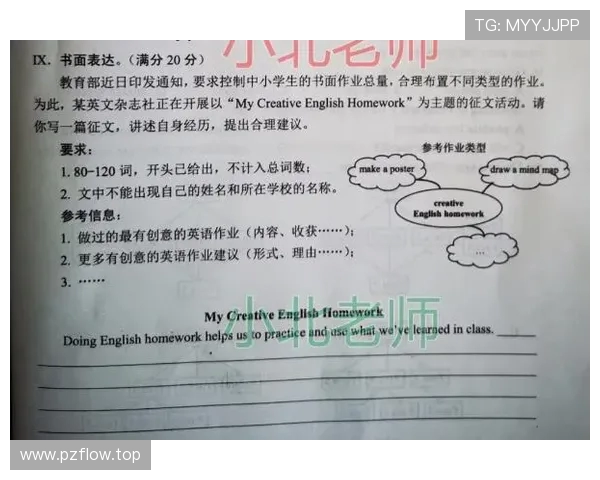 TG: MYYJJPP
小北老师
IX. 书面表达。(满分 20 分)
教育部近日印发通知,要求控制中小学生的书面作业总量,合理布置不同类型的作业。
为此,某英文杂志社正在开展以“My Creative English Homework”为主题的征文活动。请
你写一篇征文,讲述自身经历,提出合理建议。
要求:
1. 80-120 词,开头已给出,不计入总词数;
2. 文中不能出现自己的姓名和所在学校的名称。
参考信息:
1. 做过的最有创意的英语作业(内容、收获……);
2. 更多有创意的英语作业建议(形式、理由……);
3. ……
参考作业类型
make a poster
draw a mind map
creative
English homework
…
My Creative English Homework
小北老师
Doing English homework helps us to practice and use what we've learned in class.
www.pzflow.top